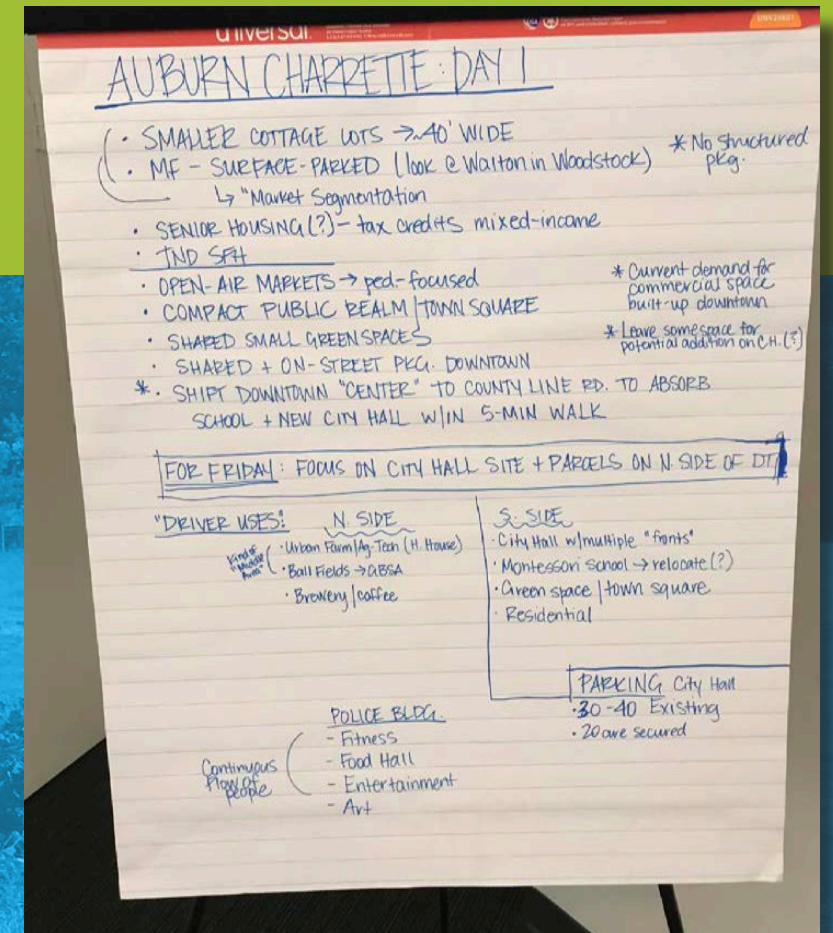 universal.
AUBURN CHARRETTE: DAY 1
· SMALLER COTTAGE LOTS → ~40' WIDE
· MF - SURFACE-PARKED (look @ Walton in Woodstock)
* No structured
pkg.
↳ "Market Segmentation
· SENIOR HOUSING (?) - tax credits mixed-income
· TND SFH
· OPEN-AIR MARKETS → ped-focused
· COMPACT PUBLIC REALM / TOWN SQUARE
· SHARED SMALL GREEN SPACES
· SHARED + ON-STREET PKG. DOWNTOWN
* Current demand for
commercial space
built-up downtown
* Leave some space for
potential addition on C.H. (?)
* · SHIFT DOWNTOWN "CENTER" TO COUNTY LINE RD. TO ABSORB
SCHOOL + NEW CITY HALL W/IN 5-MIN WALK
FOR FRIDAY: FOCUS ON CITY HALL SITE + PARCELS ON N. SIDE OF DT
"DRIVER USES":
N. SIDE
Kind of
"Middle
Area"
· Urban Farm/Ag-Tech (H. House)
· Ball Fields → GBSA
· Brewery/coffee
S. SIDE
· City Hall w/multiple "fronts"
· Montessori School → relocate (?)
· Green space / town square
· Residential
PARKING City Hall
· 30-40 Existing
· 20 are secured
POLICE BLDG.
- Fitness
- Food Hall
- Entertainment
- Art
Continuous
Flow of
people